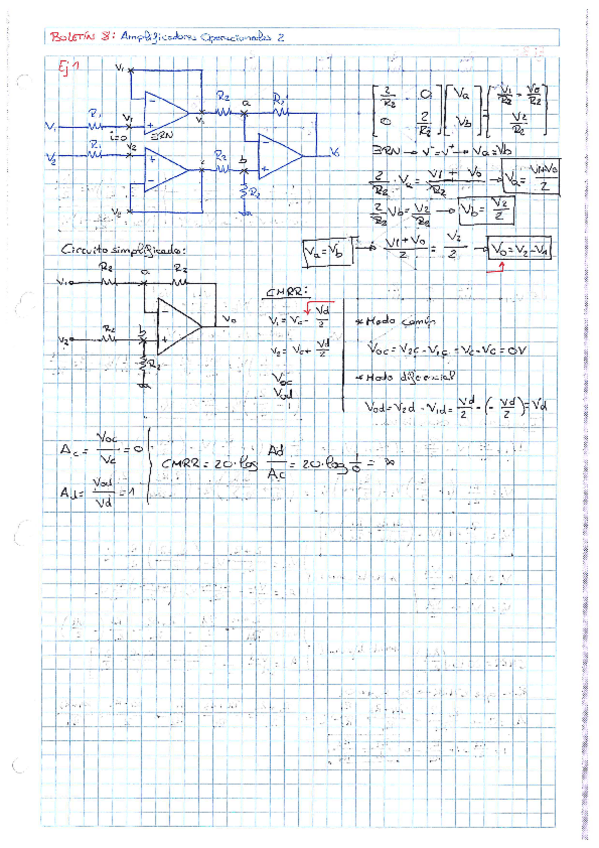 BOLETÍN 8: Amplificadores Operacionales 2
Ej 1
V1
R1
V1
i=0
∃RN
V1
R2
a
R2
Vo
V2
R1
V2
R2
b
R2
V2
[2/R2 0; 0 2/R2] [Va; Vb] = [V1/R2 + Vo/R2; V2/R2]
∃RN → V⁻=V⁺ → Va=Vb
2/R2 · Va = (V1 + Vo)/R2 → Va = (V1+Vo)/2
2/R2 Vb = V2/R2 → Vb = V2/2
Va = Vb → (V1+Vo)/2 = V2/2 → Vo = V2 - V1
Circuito simplificado:
R2
a
R2
V1
V2
R2
b
R2
Vo
CMRR:
V1 = Vc - Vd/2
V2 = Vc + Vd/2
Voc
Vod
* Modo común
Voc = V2c - V1c = Vc - Vc = 0V
* Modo diferencial
Vod = V2d - V1d = Vd/2 - (- Vd/2) = Vd
Ac = Voc/Vc = 0
Ad = Vod/Vd = 1
CMRR = 20·log Ad/Ac = 20·log 1/0 = ∞